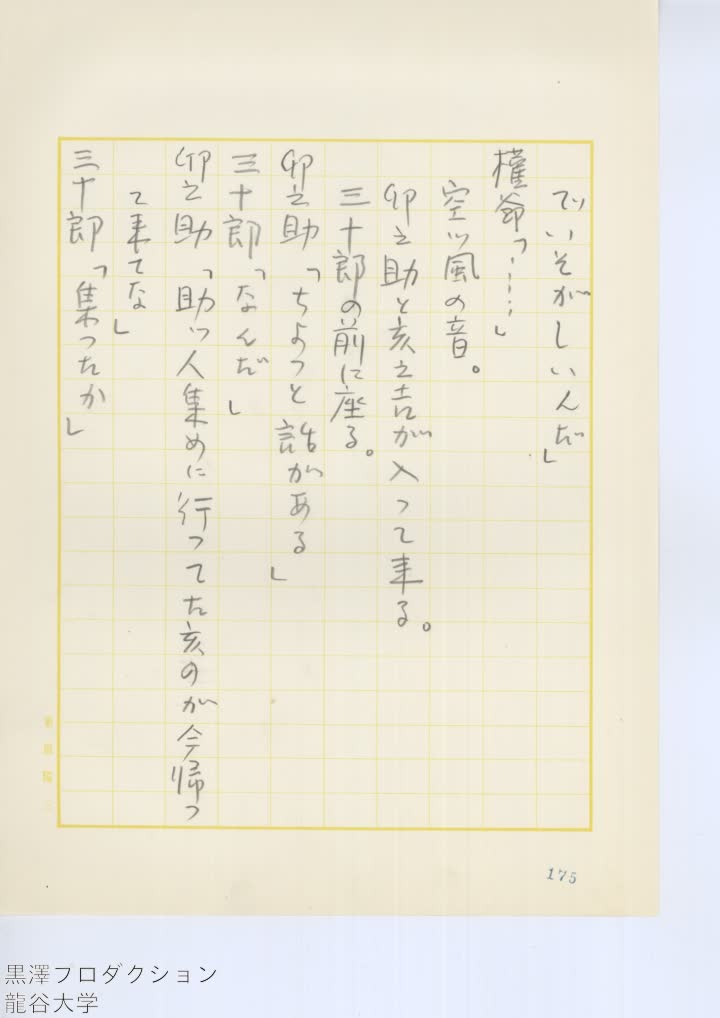 でいそがしいんだ」
権爺「・・・・」
空ッ風の音。
卯之助と亥之吉が入って来る。
三十郎の前に座る。
卯之助「ちょっと話がある」
三十郎「なんだ」
卯之助「助ッ人集めに行ってた亥のが今帰っ
て来てな」
三十郎「集ったか」
175
黒澤プロダクション
龍谷大学